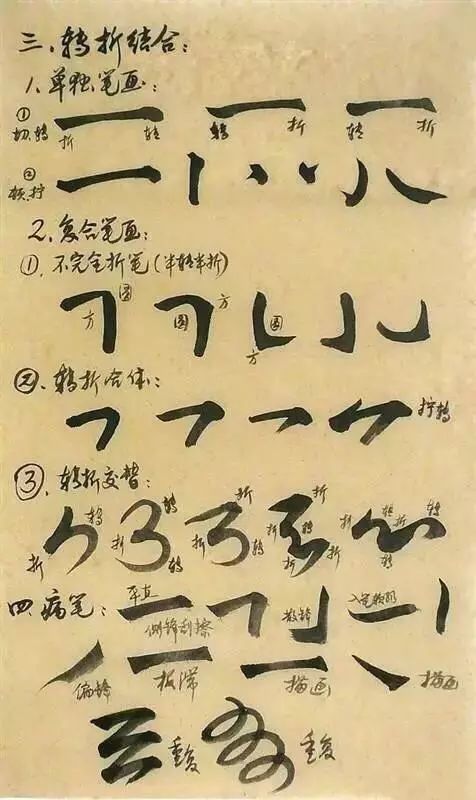 三、转折结合：
1、单独笔画：
① 切、转 折 转 转 折 转 折
② 顿、拧
2、复合笔画：
①、不完全折笔（半转半折）
方 圆 圆 方 方 圆
②、转折合体：
拧转
③、转折交替：
折 转 折 转 转 折 折 转 折 折 转 折 折 转 折 转 转
四、病笔： 平直 侧锋刮擦 散锋 入笔顿跷
偏锋 板滞 描画 描画
重复 重复